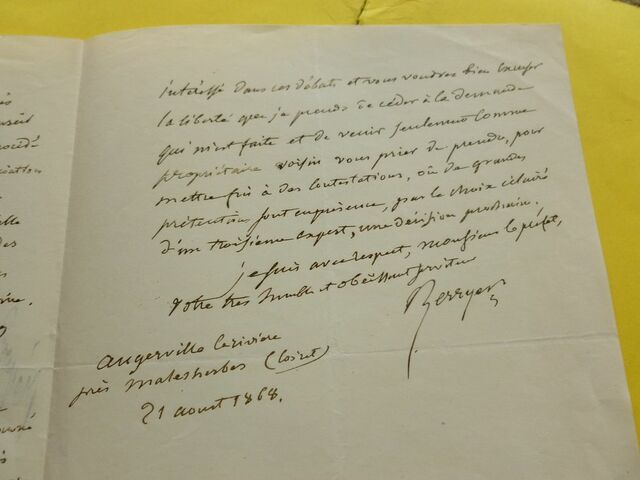 intéressé dans ces débats et vous voudrez bien excuser
la liberté que je prends de céder à la demande
qui m'est faite et de venir seulement comme
propriétaire voisin vous prier de prendre, pour
mettre fin à des contestations, où de grandes
prétentions sont en présence, par le choix éclairé
d'un troisième expert, une décision prochaine.
je suis avec respect, monsieur le préfet,
votre très humble et obéissant serviteur
Berryer
augerville la rivière
près malesherbes (Loiret)
21 aout 1868.